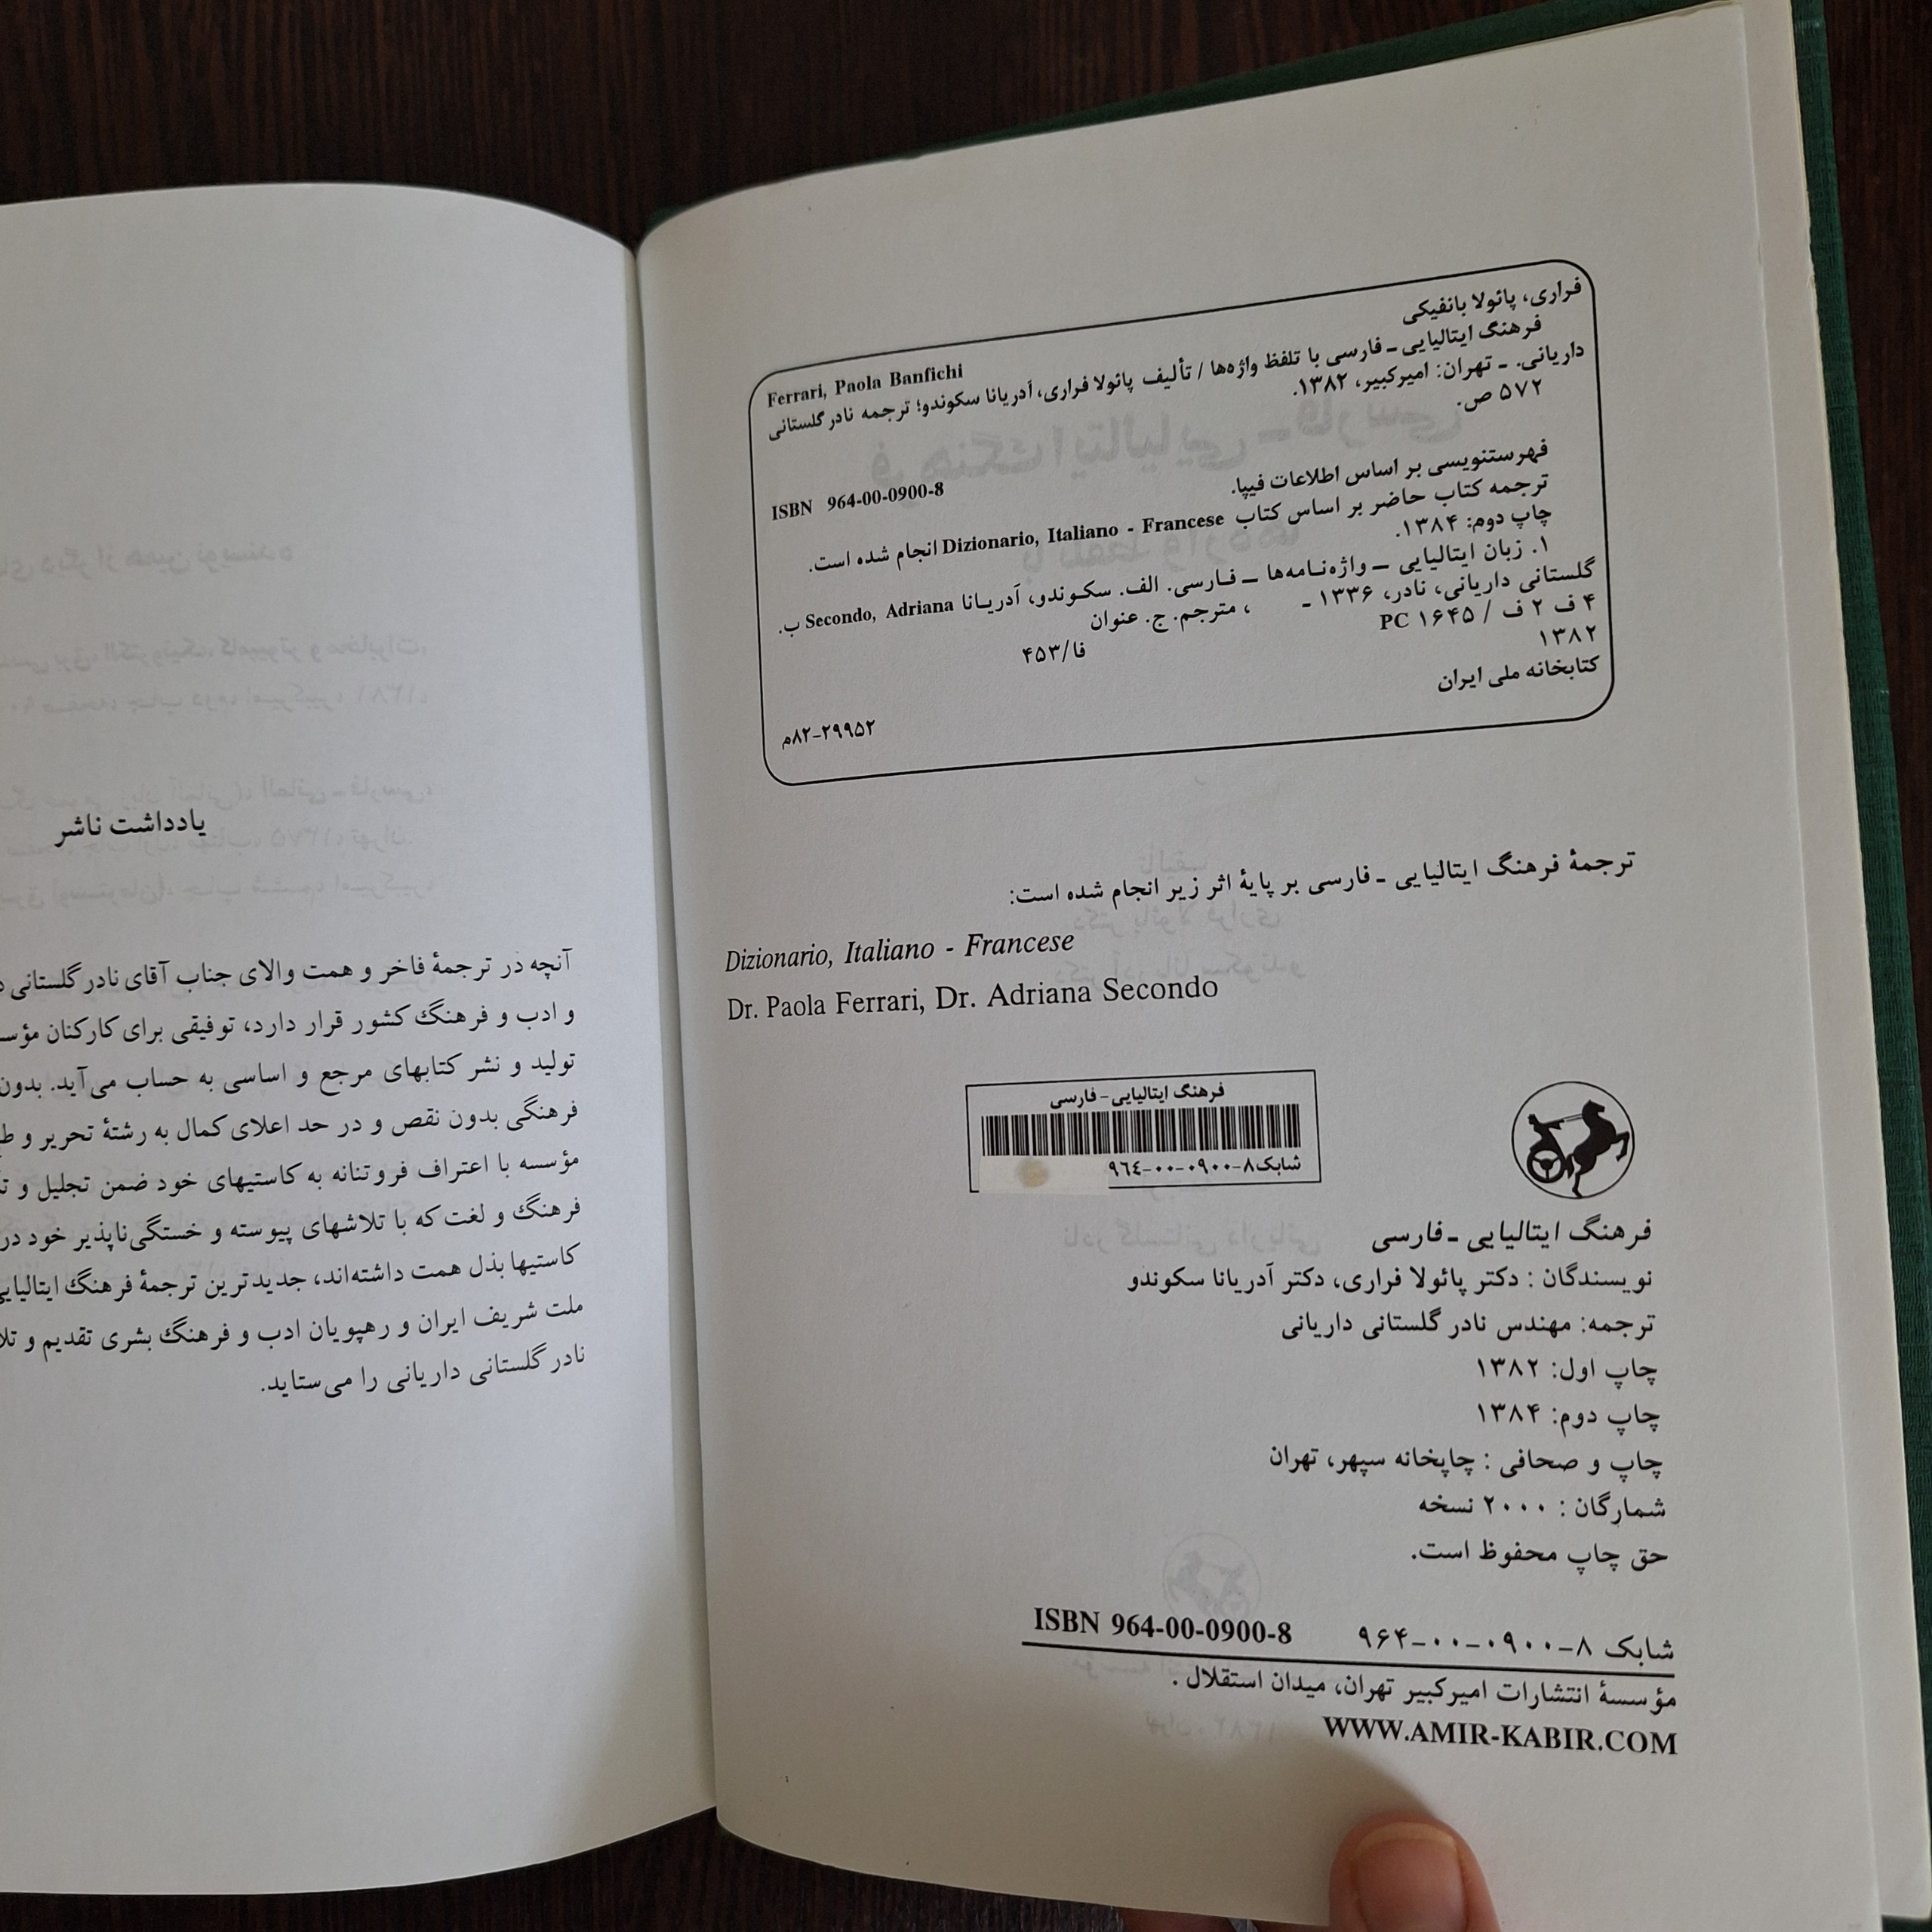 فراری، پائولا بانفیکی
Ferrari, Paola Banfichi
فرهنگ ایتالیایی ـ فارسی با تلفظ واژه‌ها / تألیف پائولا فراری، آدریانا سکوندو؛ ترجمه نادر گلستانی
داریانی. ـ تهران: امیرکبیر، ۱۳۸۲.
۵۷۲ ص.
ISBN 964-00-0900-8
فهرستنویسی بر اساس اطلاعات فیپا.
ترجمه کتاب حاضر بر اساس کتاب Dizionario, Italiano - Francese انجام شده است.
چاپ دوم: ۱۳۸۴.
۱. زبان ایتالیایی ــ واژه‌نامه‌ها ــ فارسی. الف. سکوندو، آدریانا Secondo, Adriana ب.
گلستانی داریانی، نادر، ۱۳۳۶ ـ ، مترجم. ج. عنوان
۴ ف ۲ ف / PC ۱۶۴۵
فا/۴۵۳
۱۳۸۲
کتابخانه ملی ایران
۸۲-۲۹۹۵۲م
ترجمهٔ فرهنگ ایتالیایی ـ فارسی بر پایهٔ اثر زیر انجام شده است:
Dizionario, Italiano - Francese
Dr. Paola Ferrari, Dr. Adriana Secondo
فرهنگ ایتالیایی - فارسی
شابک ۸-۰۹۰۰-۰۰-۹٦٤
فرهنگ ایتالیایی ـ فارسی
نویسندگان : دکتر پائولا فراری، دکتر آدریانا سکوندو
ترجمه: مهندس نادر گلستانی داریانی
چاپ اول: ۱۳۸۲
چاپ دوم: ۱۳۸۴
چاپ و صحافی : چاپخانه سپهر، تهران
شمارگان : ۲۰۰۰ نسخه
حق چاپ محفوظ است.
شابک ۸-۰۹۰۰-۰۰-۹۶۴ ISBN 964-00-0900-8
مؤسسهٔ انتشارات امیرکبیر تهران، میدان استقلال .
WWW.AMIR-KABIR.COM
یادداشت ناشر
آنچه در ترجمهٔ فاخر و همت والای جناب آقای نادر گلستانی
و ادب و فرهنگ کشور قرار دارد، توفیقی برای کارکنان
تولید و نشر کتابهای مرجع و اساسی به حساب می‌آید. بدون
فرهنگی بدون نقص و در حد اعلای کمال به رشتهٔ تحریر و
مؤسسه با اعتراف فروتنانه به کاستیهای خود ضمن تجلیل و
فرهنگ و لغت که با تلاشهای پیوسته و خستگی‌ناپذیر خود در
کاستیها بذل همت داشته‌اند، جدیدترین ترجمهٔ فرهنگ ایتالیایی
ملت شریف ایران و رهپویان ادب و فرهنگ بشری تقدیم و
نادر گلستانی داریانی را می‌ستاید.